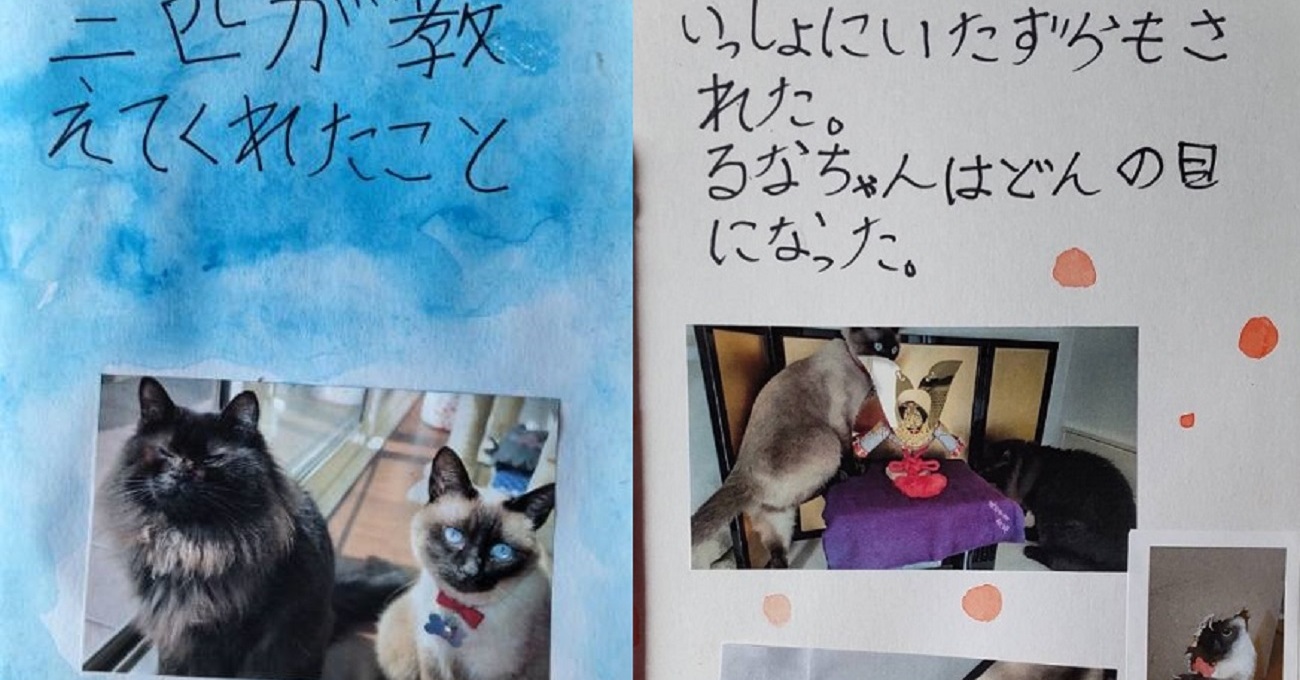 三匹が教
えてくれたこと
いっしょにいたずらもさ
れた。
るなちゃんはどんの目
になった。